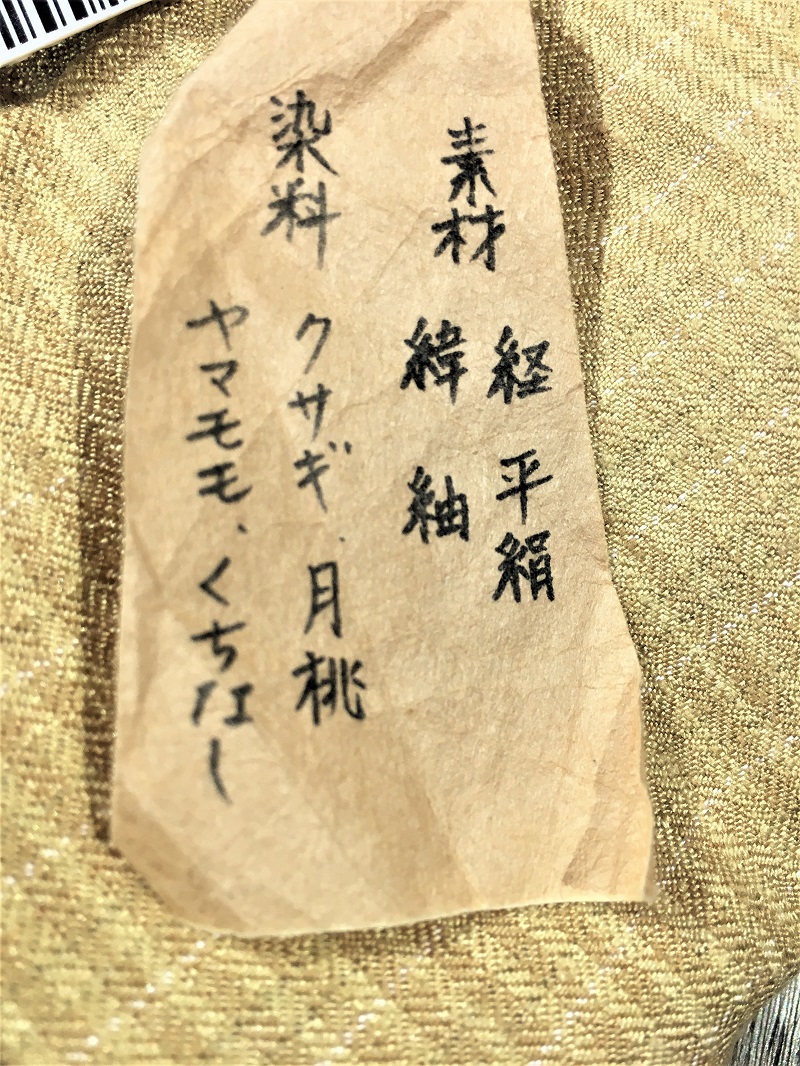 素材
経 平絹
緯 紬
染料
クサギ、月桃
ヤマモモ、くちなし